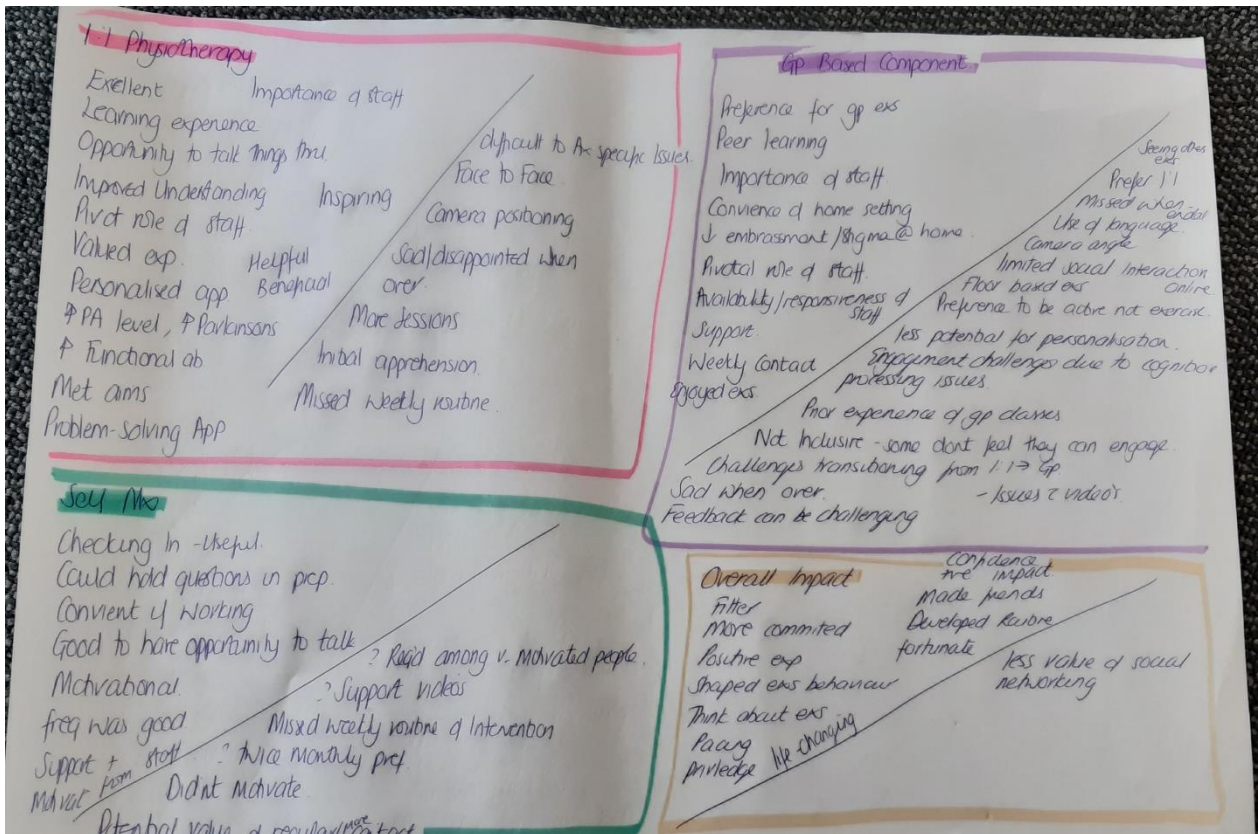 1:1 Physiotherapy
Exellent
Importance of staff
Learning experience
Opportunity to talk things thru.
Improved Understanding
Inspiring
Pivot role of staff
Valued exp.
Helpful
Personalised app
Beneficial
↑PA level, ↑Parkinsons
↑ Functional ab
Met aims
Problem-Solving App
difficult to Ax specific Issues.
Face to Face.
Camera positioning
Sad/disappointed when
over.
More Sessions
Initial apprehension.
Missed Weekly routine.
Gp Based Component
Preference for gp exs
Peer learning
Importance of staff.
Convience of home setting
↓ embrasment/stigma @ home.
Pivotal role of staff.
Availability/responsiveness of
staff
Support.
Weekly Contact
Enjoyed exs.
Seeing others
exs
Prefer 1:1
Missed when
ended
Use of language.
Camera angle
limited social interaction
online
Floor based exs
Preference to be active not exercise.
less potential for personalisation.
Engagement challenges due to cognition
processing issues.
Prior experience of gp classes.
Not Inclusive - some dont feel they can engage.
Challenges transitioning from 1:1→ Gp.
Sad when over.
- Issues c video's.
Feedback can be challenging
Self Mx
Checking In -Useful.
Could hold questions in prep.
Convient if working
Good to have opportunity to talk
Motivational.
freq was good
Support +
Motivat from staff
? Req'd among v. Motivated people.
? Support videos
Missed weekly routine of Intervention
? twice monthly pref
Didnt Motivate.
Potential value of regular/more contact
Overall Impact
Fitter
More commited
Positive exp
Shaped exs behaviour
Think about exs
Pacing
priviledge
life changing
Confidence
+ve impact
Made friends
Developed
fortunate
less value of social
networking